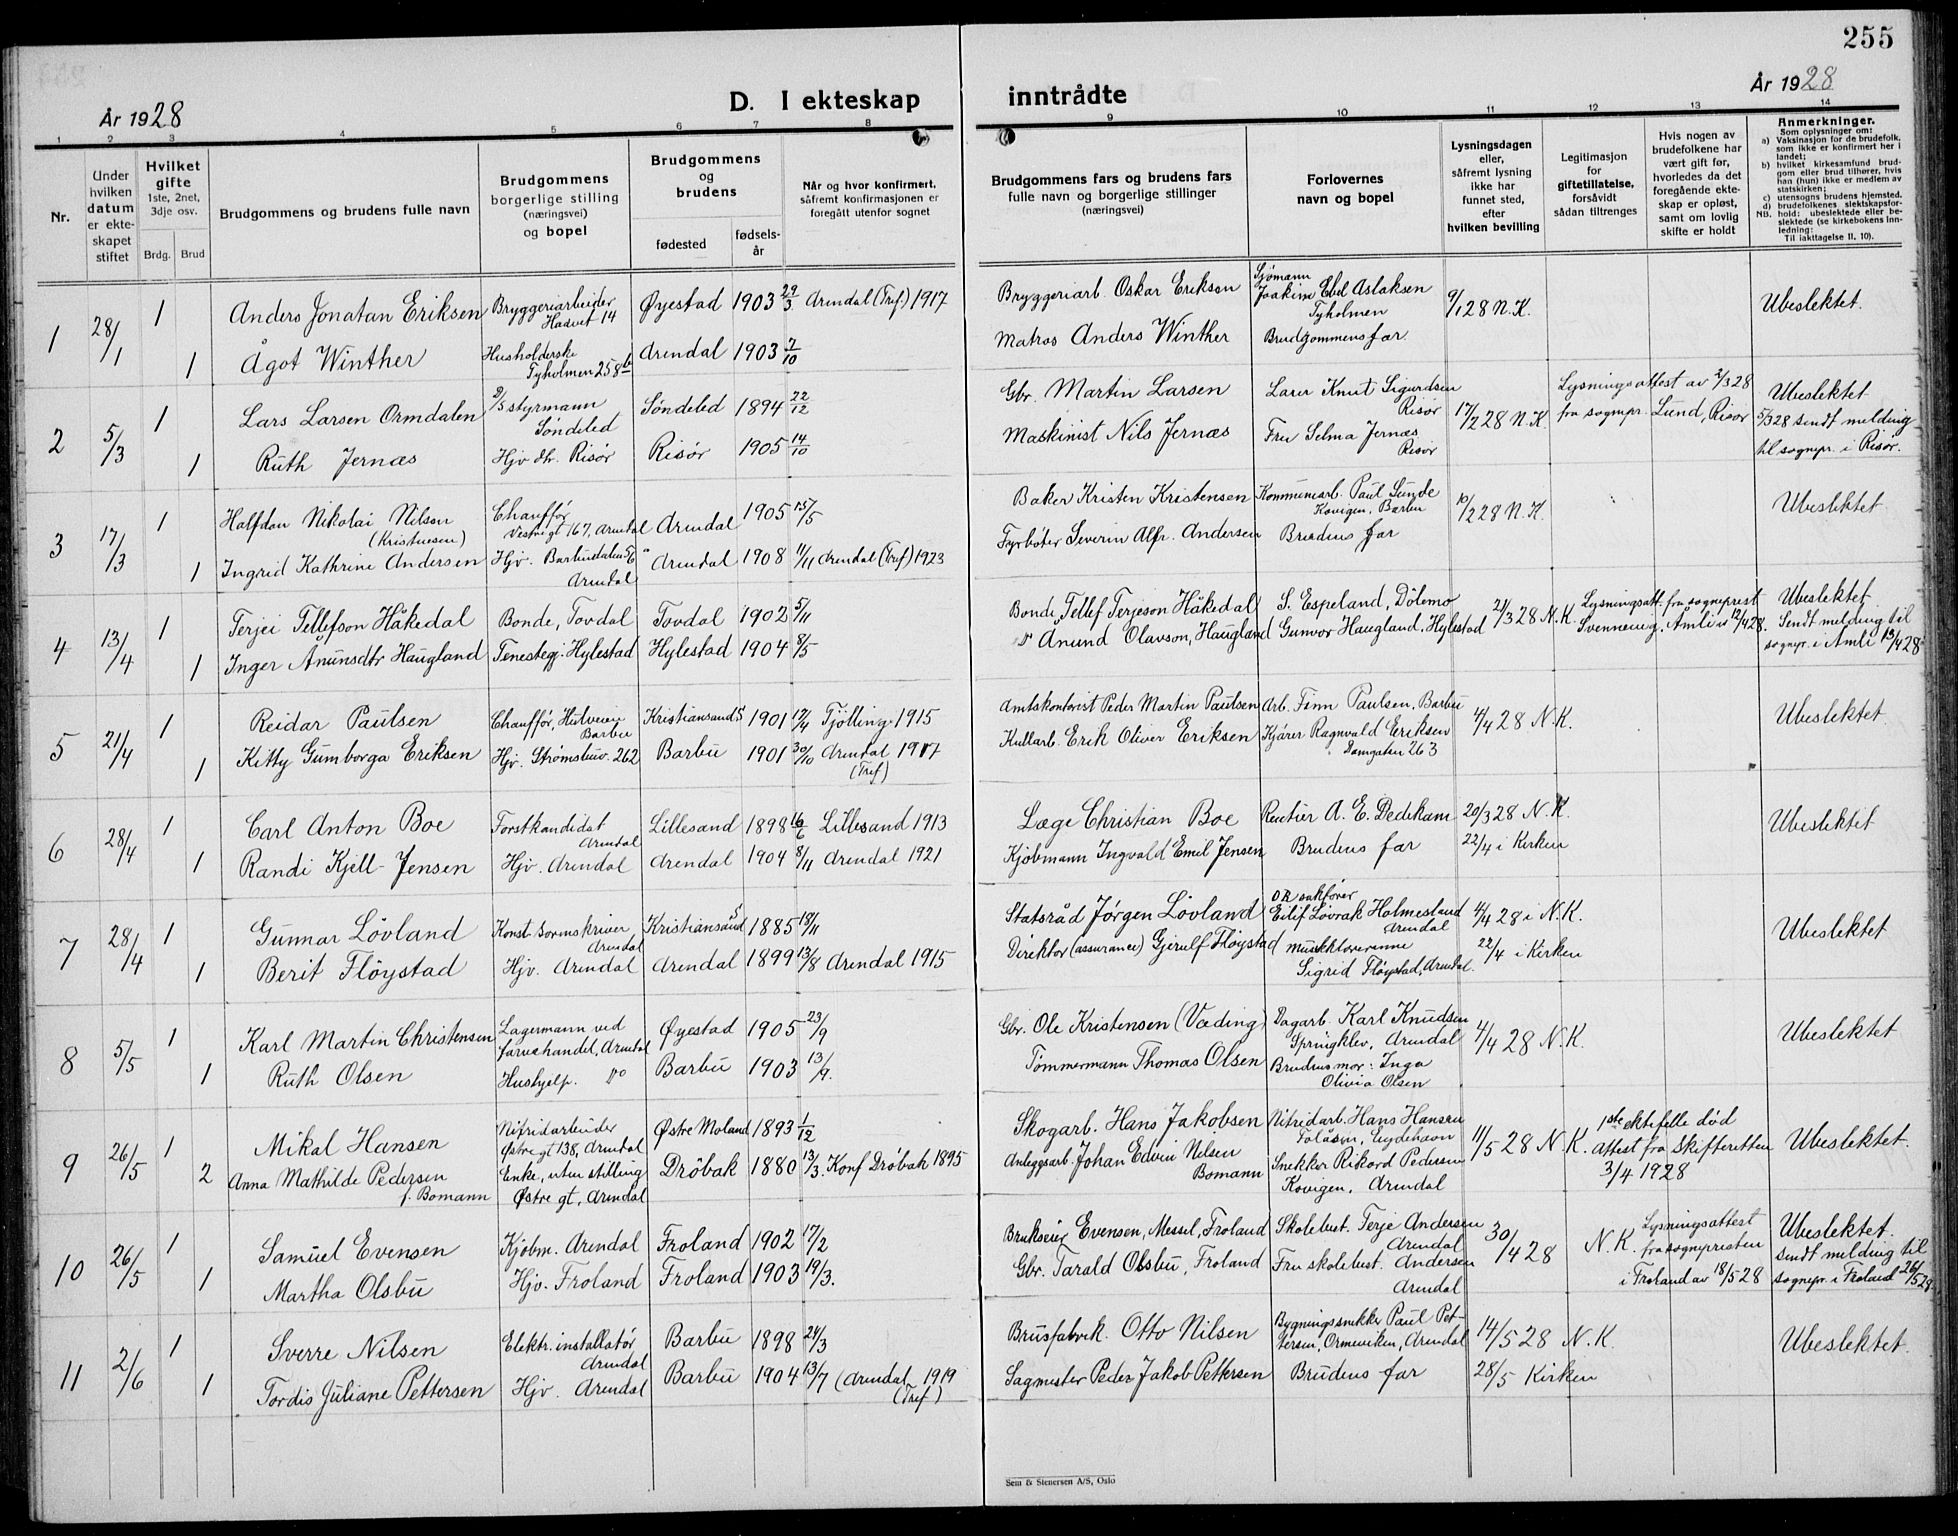 255
År 1928
D. I ekteskap inntrådte
År 1928
1 2 3 4 5 6 7 8 9 10 11 12 13 14
Nr.
Under hvilken datum er ekte-skapet stiftet
Hvilket gifte 1ste, 2net, 3dje osv.
Brdg. Brud
Brudgommens og brudens fulle navn
Brudgommens borgerlige stilling (næringsvei) og bopel
Brudgommens og brudens
fødested
fødsels-år
Når og hvor konfirmert, såfremt konfirmasjonen er foregått utenfor sognet
Brudgommens fars og brudens fars fulle navn og borgerlige stillinger (næringsvei)
Forlovernes navn og bopel
Lysningsdagen eller, såfremt lysning ikke har funnet sted, efter hvilken bevilling
Legitimasjon for giftetillatelse, forsåvidt sådan tiltrenges
Hvis nogen av brudefolkene har vært gift før, hvorledes da det foregående ekte-skap er opløst, samt om lovlig skifte er holdt
Anmerkninger.
Som oplysninger om:
a) Vaksinasjon for de brudefolk, som ikke er konfirmert her i landet;
b) hvilket kirkesamfund brud-gom eller brud tilhører, hvis han (hun) ikke er medlem av statskirken;
c) utensogns brudens hjemsted.
d) brudefolkenes slektskapsfor-hold: ubeslektede eller be-slektede (se kirkebokens inn-ledning:
NB. Til iakttagelse II, 10).
1 28/1 1 Anders Jonatan Eriksen Bryggeriarbeider Øyestad 1903 29/3 Arendal (Tref.) 1917 Bryggeriarb. Oskar Eriksen Sjømann Joakim Ebel Aslaksen Tyholmen 9/1 28 N.K. Ubeslektet.
1 Ågot Winther Husholderske Tyholmen 258b Arendal 1903 7/10 Matros Anders Winther Brudgommens far
2 5/3 1 Lars Larsen Ormdalen styrmann Søndeled Søndeled 1894 22/12 Gbr. Martin Larsen Lærer Knut Sigurdsen Risør 17/2 28 N.K. Lysningsattest av 2/3 28 fra sognepr. Lund, Risør Ubeslektet
1 Ruth Jernæs Hjv. dtr. Risør Risør 1905 14/10 Maskinist Nils Jernæs Fru Selma Jernæs Risør 5/3 28 sendt melding til sognepr. i Risør.
3 17/3 1 Halfdan Nikolai Nilsen (Kristensen) Chauffør Vestregt 167, Arendal Arendal 1905 15/5 Baker Kristen Kristensen Kommunearb. Paul Sunde Kovigen, Barbu 10/2 28 N.K. Ubeslektet
1 Ingrid Kathrine Andersen Hjv. Barbudalen 56 Arendal Arendal 1908 11/11 Arendal (Tref) 1923 Fyrbøter Severin Alfr. Andersen Brudens far
4 13/4 1 Terjei Tellefson Håkedal Bonde, Tovdal Tovdal 1902 5/11 Bonde Tellef Terjeson Håkedal S. Espeland, Dölemo 21/3 28 N.K. Lysningsatt. fra sogneprest Svenneng, Åmli 12/4 28. Ubeslektet
1 Inger Anunsdtr Haugland Tenestegj. Hylestad Hylestad 1904 8/5 Anund Olavson, Haugland Gunvor Haugland, Hylestad Sendt melding til sognepr. i Åmli 13/4 28
5 21/4 1 Reidar Paulsen Chauffør, Barbu Kristiansand S 1901 Tjölling 1915 Amtskontorist Peder Martin Paulsen Arb. Finn Paulsen, Barbu 4/4 28 N.K. Ubeslektet
1 Kitty Gumborga Eriksen Hjv. Strømsbuv. 262 Barbu 1901 30/10 Arendal 1917 (Tref) Kullarb. Erik Oliver Eriksen Kjører Ragnvald Eriksen 263
6 28/4 1 Carl Anton Boe Forstkandidat Arendal Lillesand 1898 16/6 Lillesand 1913 Læge Christian Boe Rentier A. E. Dedekam 20/3 28 N.K. Ubeslektet
1 Randi Kjell-Jensen Hjv. Arendal Arendal 1904 8/11 Arendal 1921 Kjøbmann Ingvald Emil Jensen Brudens far 22/4 i Kirken
7 28/4 1 Gunnar Lövland Konst. Sorenskriver Arendal Kristiansand S 1885 18/11 Statsråd Jörgen Lövland O.R. sakfører Eilif Løvrak Holmesland Arendal 4/4 28 i N.K. Ubeslektet
1 Berit Flöystad Hjv. Arendal Arendal 1899 13/8 Arendal 1915 Direktør (assurance) Gjerulf Fløystad Musiklærerinne Sigrid Fløystad, Arendal. 22/4 i Kirken
8 5/5 1 Karl Martin Christensen Lagermann ved farvehandel, Arendal Øyestad 1905 23/9 Gbr. Ole Kristensen (Væding) Dagarb. Karl Knudsen Springklev, Arendal 4/4 28 N.K. Ubeslektet
1 Ruth Olsen Hushjelp. do Barbu 1903 Tömmermann Thomas Olsen Brudens mor: Inga Olivia Olsen
9 26/5 1 Mikal Hansen Nitridarbeider Østregt 138, Arendal Østre Moland 1893 1/12 Skogarb. Hans Jakobsen Nitridarb. Hans Hansen Eydehavn 11/5 28 N.K. 1ste ektefelle död Attest fra Skifteretten 3/4 1928 Ubeslektet.
2 Anna Mathilde Pedersen f. Bomann Enke, uten stilling Østre gt, Arendal Dröbak 1880 13/3. Konf Dröbak 1895 Anleggsarb. Johan Edvin Nilsen Bomann Snekker Rikard Pedersen Kovigen, Arendal
10 26/5 1 Samuel Evensen Kjöbm. Arendal Froland 1902 17/2 Brukseier Evensen, Messel, Froland Skolebest. Terje Andersen Arendal 30/4 28 N.K. Lysningsattest fra sognepresten i Froland av 18/5 28 Ubeslektet.
1 Martha Olsbu Hjv. Froland Froland 1903 19/3. Gbr. Tarald Olsbu, Froland Fru skolebest. Andersen Arendal Sendt melding til sognepr. i Froland 26/5 28.
11 2/6 1 Sverre Nilsen Elektr. installatør Arendal Barbu 1898 24/3 Brusfabrik. Otto Nilsen Bygningssnekker Paul Pet-tersen, Ormeviken, Arendal 14/5 28 N.K Ubeslektet.
1 Tordis Juliane Pettersen Hjv. Arendal Barbu 1904 13/7 (Arendal 1919 (Tref) Sagmester Peder Jakob Pettersen Brudens far 28/5 Kirken
Sem & Stenersen A/S, Oslo